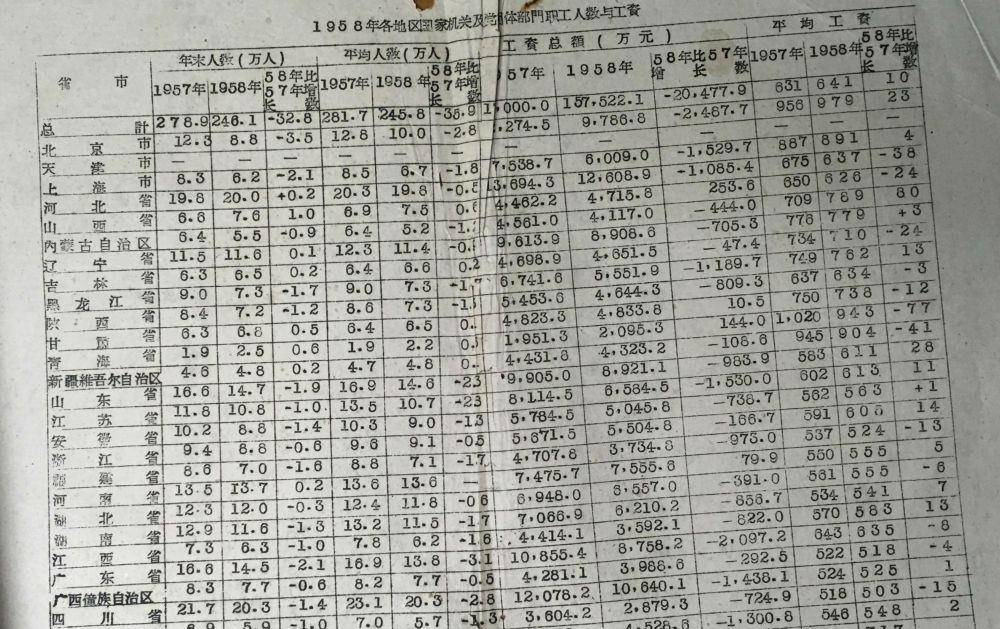 1958年各地区国家机关及党团体部門职工人数与工資
省 市 年末人数(万人) 平均人数(万人) 工資总額(万元) 平均工資
1957年 1958年 58年比57年增长数 1957年 1958年 58年比57年增长数 57年 1958年 58年比57年增长数 1957年 1958年 58年比57年增长数
总計 278.9 246.1 -32.8 281.7 245.8 -35.9 000.0 157,522.1 -20,477.9 631 641 10
北京市 12.3 8.8 -3.5 12.8 10.0 -2.8 274.5 9,786.8 -2,487.7 956 979 23
天津市 — — — — — — — — — — — —
上海市 8.3 6.2 -2.1 8.5 6.7 -1.8 7,538.7 6,009.0 -1,529.7 887 891 4
河北省 19.8 20.0 +0.2 20.3 19.8 -0.5 13,694.3 12,608.9 -1,085.4 675 637 -38
山西省 6.6 7.6 1.0 6.9 7.5 0.6 4,462.2 4,715.8 253.6 650 626 -24
内蒙古自治区 6.4 5.5 -0.9 6.4 5.2 4,561.0 4,117.0 -444.0 709 789 80
辽宁省 11.5 11.6 0.1 12.3 11.4 9,613.9 8,908.6 -705.3 776 779 +3
吉林省 6.3 6.5 0.2 6.4 6.6 0.2 4,698.9 4,651.5 -47.4 734 710 -24
黑龙江省 9.0 7.3 -1.7 9.0 7.3 -1.7 6,741.6 5,551.9 -1,189.7 749 762 13
陕西省 8.4 7.2 -1.2 8.6 7.3 5,453.6 4,644.3 -809.3 637 634 -3
甘肅省 6.3 6.8 0.5 6.4 6.5 4,823.3 4,833.8 10.5 750 738 -12
青海省 1.9 2.5 0.6 1.9 2.2 1,951.3 2,095.3 144.0 1,020 943 -77
新疆維吾尔自治区 4.6 4.8 0.2 4.7 4.8 4,431.8 4,323.2 -108.6 945 904 -41
山东省 16.6 14.7 -1.9 16.9 14.6 -2.3 9,905.0 8,921.1 -983.9 583 611 28
江苏省 11.8 10.8 -1.0 13.5 10.7 8,114.5 6,584.5 -1,530.0 602 613 11
安徽省 10.2 8.8 -1.4 10.3 9.0 -1.3 5,784.5 5,045.8 -738.7 562 563 +1
浙江省 9.4 8.8 -0.6 9.6 9.1 -0.5 5,671.5 5,504.8 -166.7 591 605 14
福建省 8.6 7.0 -1.6 8.8 7.1 -1.7 4,707.8 3,734.8 -973.0 537 524 -13
河南省 13.5 13.7 0.2 13.6 13.6 — 7,475.7 7,555.6 79.9 550 555 5
湖北省 12.3 12.0 -0.3 12.4 11.8 -0.6 6,948.0 6,557.0 -391.0 561 555 -6
湖南省 12.9 11.6 -1.3 13.2 11.5 -1.7 7,066.9 6,210.2 -856.7 534 541 7
江西省 7.3 6.3 -1.0 7.8 6.2 -1.6 4,414.1 3,592.1 -822.0 570 583 13
广东省 16.6 14.5 -2.1 16.9 13.8 -3.1 10,855.4 8,758.2 -2,097.2 643 635 -8
广西僮族自治区 8.3 7.7 -0.6 8.2 7.7 -0.5 4,281.1 3,988.6 -292.5 522 518 -4
四川省 21.7 20.3 -1.4 23.1 20.3 -2.8 12,078.2 10,640.1 -1,438.1 524 525 1
6.9 5.9 -1.0 7.0 5.7 -1.3 3,604.2 2,879.3 -724.9 518 503 -15
4,528.6 -1,300.8 546 548 2